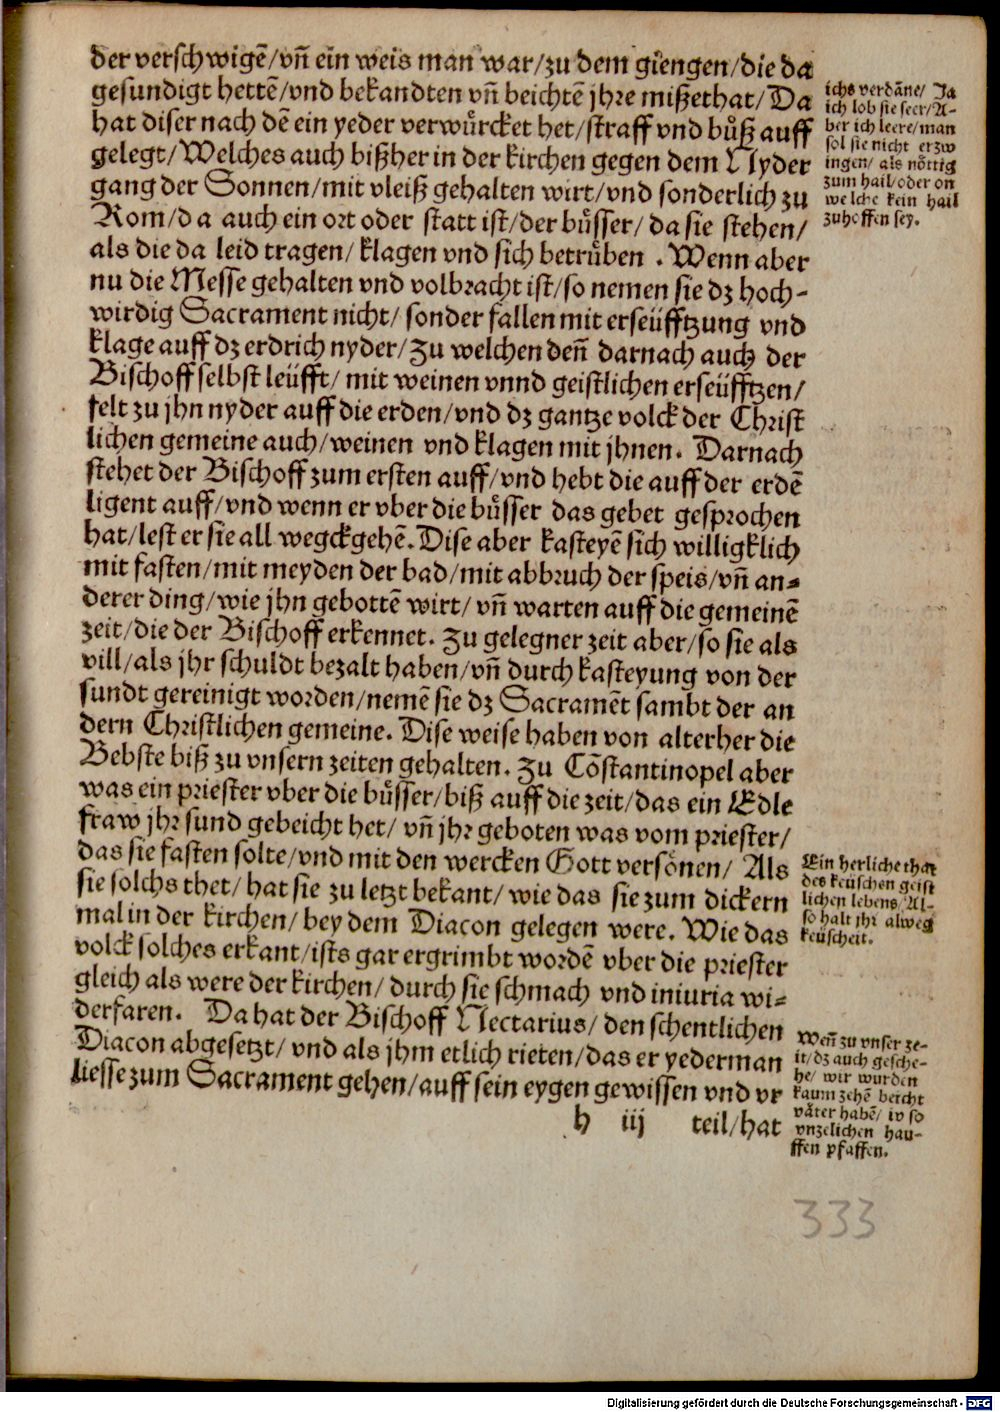 der verschwigē/vñ ein weis man war/zu dem giengen/die da
gesundigt hettē/vnd bekandten vñ beichtē jhre mißethat/Da
hat diser nach dē ein yeder verwuͤrcket het/straff vnd buͤß auff
gelegt/Welches auch bißher in der kirchen gegen dem Nyder
gang der Sonnen/mit vleiß gehalten wirt/vnd sonderlich zu
Rom/da auch ein ort oder statt ist/der buͤsser/da sie stehen/
als die da leid tragen/klagen vnd sich betruͤben . Wenn aber
nu die Messe gehalten vnd volbracht ist/so nemen sie dz hoch-
wirdig Sacrament nicht/sonder fallen mit erseüfftzung vnd
klage auff dz erdrich nyder/Zu welchen deñ darnach auch der
Bischoff selbst leüfft/mit weinen vnnd geistlichen erseüfftzen/
felt zu jhn nyder auff die erden/vnd dz gantze volck der Christ
lichen gemeine auch/weinen vnd klagen mit jhnen. Darnach
stehet der Bischoff zum ersten auff/vnd hebt die auff der erdē
ligent auff/vnd wenn er vber die buͤsser das gebet gesprochen
hat/lest er sie all wegckgehē. Dise aber kasteyē sich willigklich
mit fasten/mit meyden der bad/mit abbruch der speis/vñ an-
derer ding/wie jhn gebottē wirt/vñ warten auff die gemeinē
zeit/die der Bischoff erkennet. Zu gelegner zeit aber/so sie als
vill/als jhr schuldt bezalt haben/vñ durch kasteyung von der
sundt gereinigt worden/nemē sie dz Sacramēt sambt der an
dern Christlichen gemeine. Dise weise haben von alterher die
Bebste biß zu vnsern zeiten gehalten. Zu Cōstantinopel aber
was ein priester vber die buͤsser/biß auff die zeit/das ein Edle
fraw jhr sund gebeicht het/vñ jhr geboten was vom priester/
das sie fasten solte/vnd mit den wercken Gott versoͤnen/Als
sie solchs thet/hat sie zu letzt bekant/wie das sie zum dickern
mal in der kirchen/bey dem Diacon gelegen were. Wie das
volck solches erkant/ists gar ergrimbt wordē vber die priester
gleich als were der kirchen/durch sie schmach vnd iniuria wi-
derfaren. Da hat der Bischoff Nectarius/den schentlichen
Diacon abgesetzt/vnd als jhm etlich rieten/das er yederman
liesse zum Sacrament gehen/auff sein eygen gewissen vnd vr
h iij teil/hat
ichs verdāne/Ja
ich lob sie seer/A-
ber ich leere/man
sol sie nicht erzw
ingen/als noͤttig
zum hail/oder on
welche kein hail
zuhoffen sey.
Ein herliche that
des keüschen geist
lichen lebens/Al-
so halt jhr alweg
keüscheit.
Weñ zu vnser ze-
it/dz auch gesche-
he/wir wurden
kaum zehē beicht
vaͤter habē/in so
vnzelichen hau-
ffen pfaffen.
333
Digitalisierung gefördert durch die Deutsche Forschungsgemeinschaft - DFG